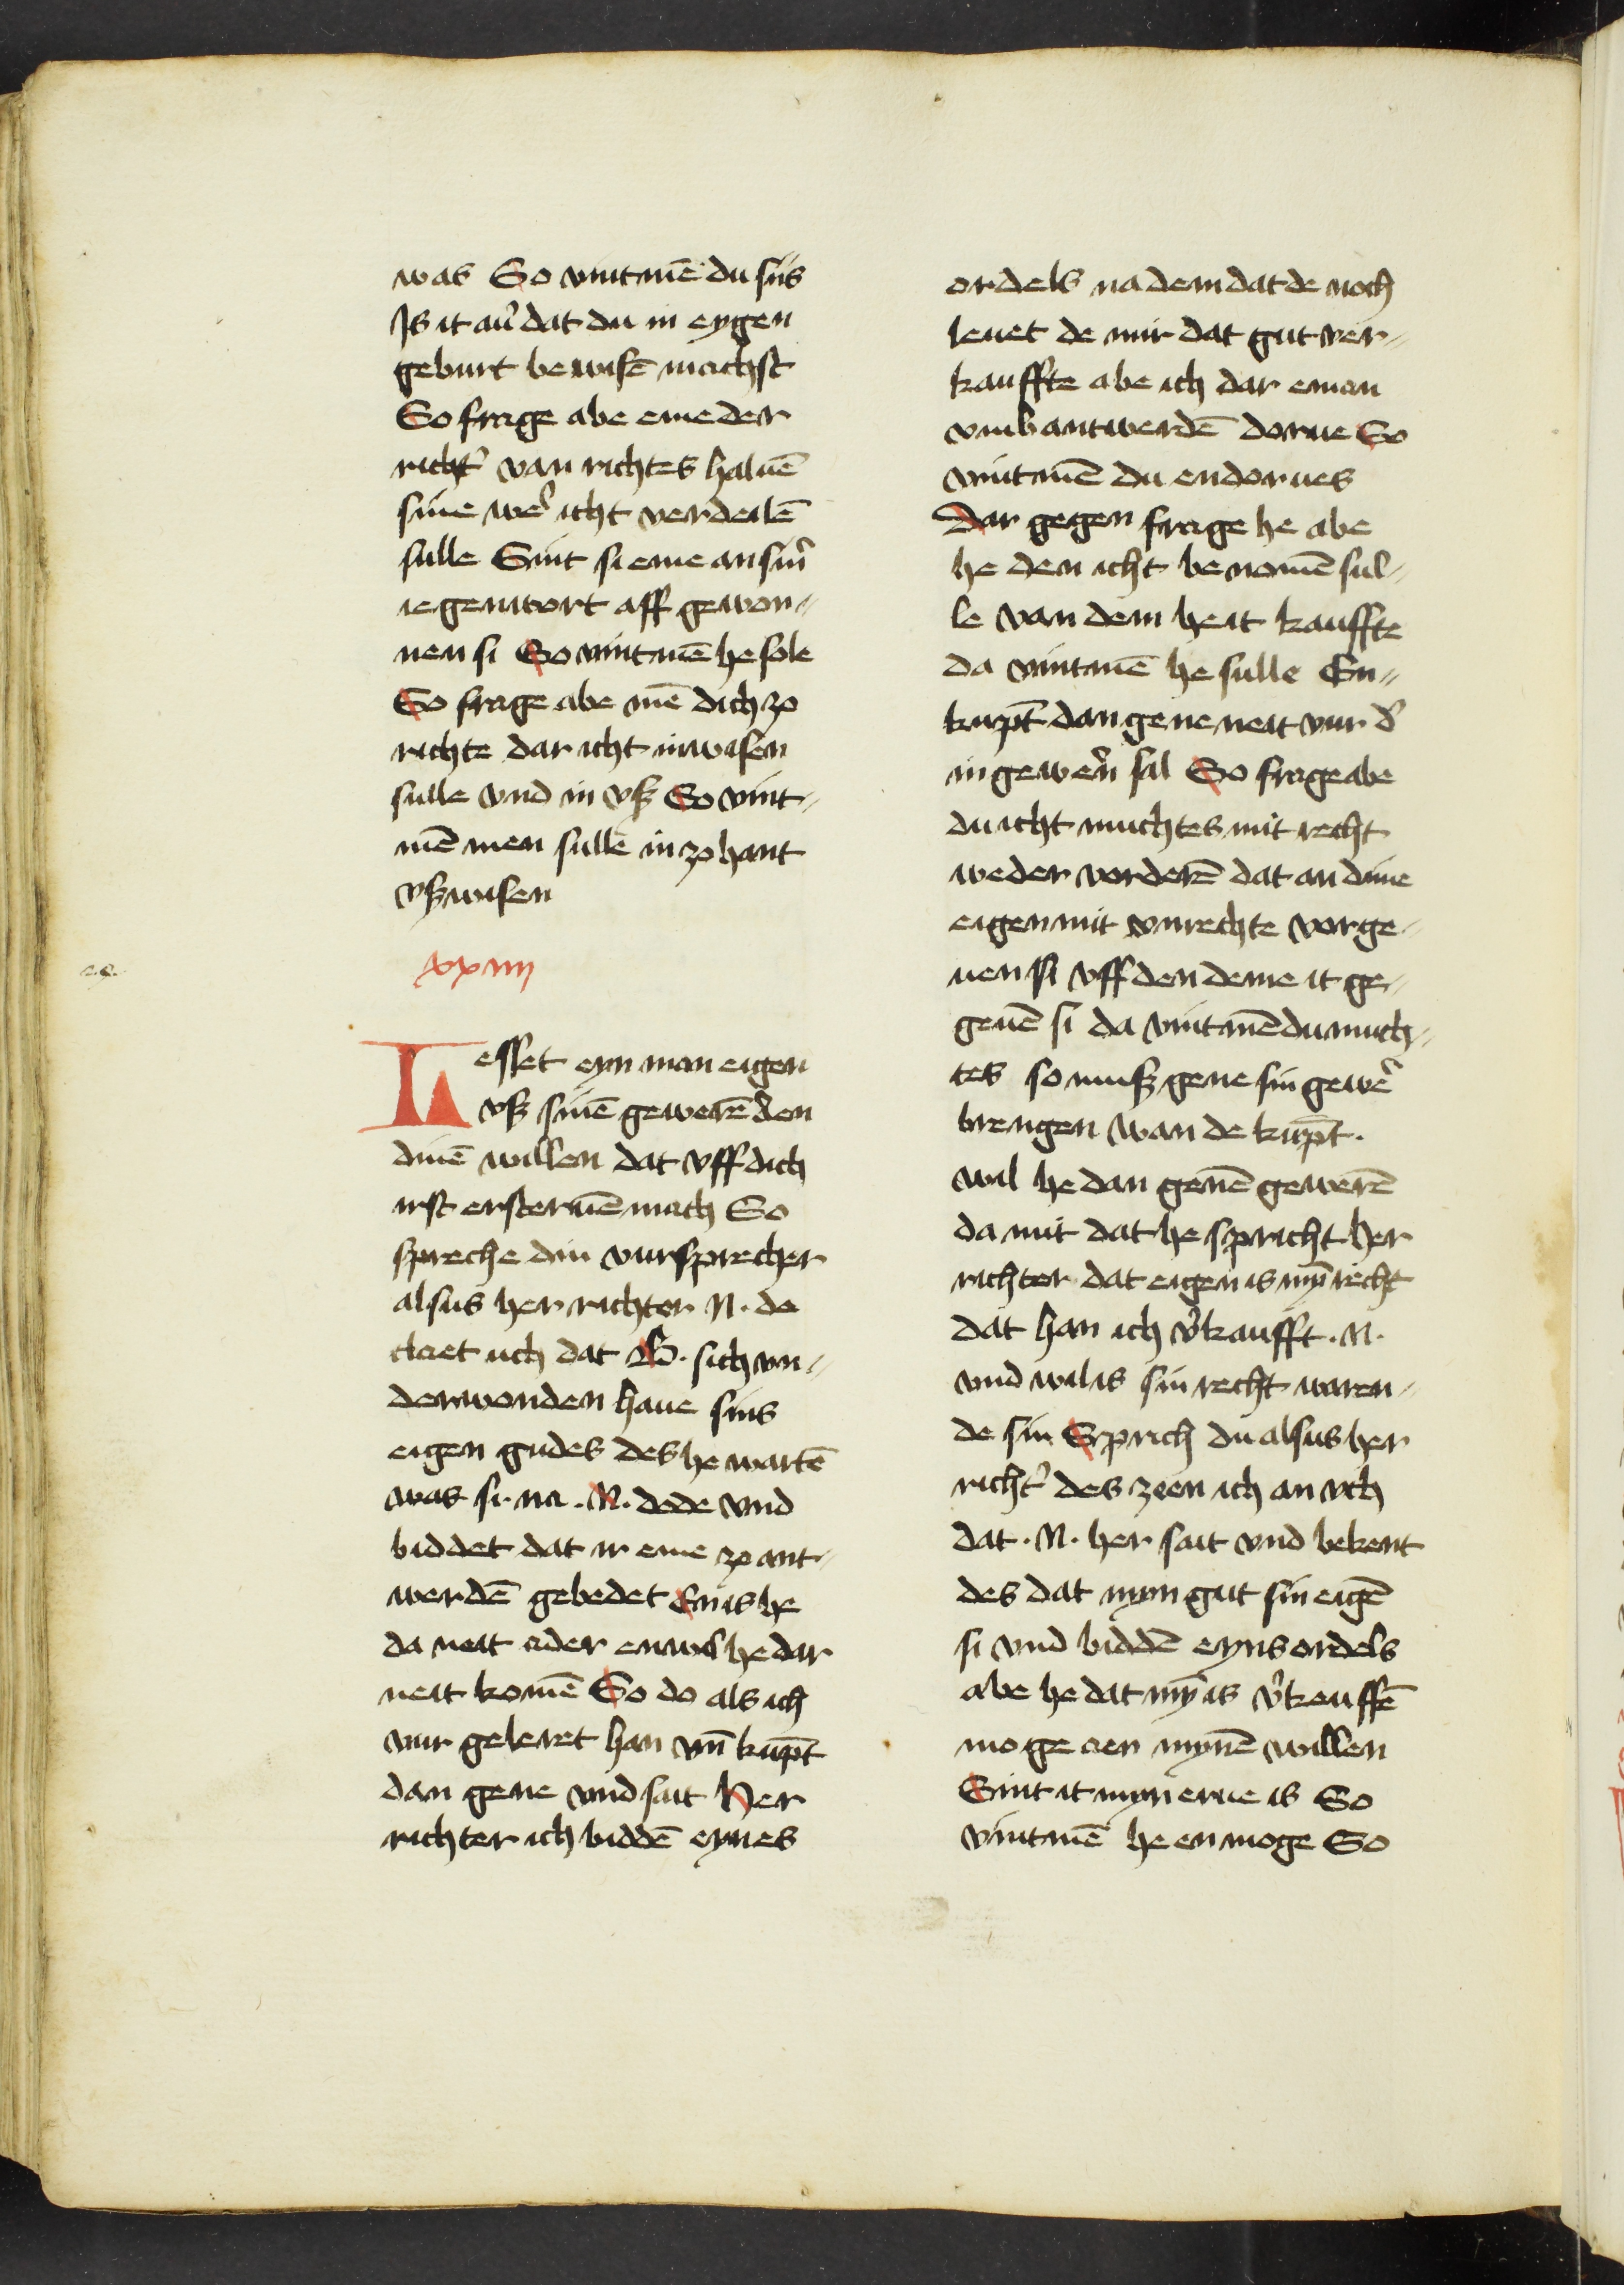 was So vintmē du siis
Js it aūˀ dat du in eygen
geburt bewisē machst
So frage abe eme der
richtˀ van richtes haluē
sine werˀ icht verdeilē
sulle Sint si eme an sinˀ
iegenwort aff gewon⸗
nen si So vintmē he sole
So frage abe mē dich zo
richte dar icht inwisen
sulle vnd in vsz So vint⸗
mē men sulle in zo hant
vszwisen
xxiiij
Lesset eyn man eigen
vsz sinē gewerē den
dinē willen dat vff dich
irst ersteruē mach So
spreche din vursprecher
alsus her richter N. de
claet uch dat B. sich vn⸗
derwonden haue sins
eigen gudes des he wartē
was si na. N. dode vnd
biddet dat ir eme zo ant⸗
werdē gebedet Enis he
da neit ader enwil he dar
neit komē So do als ich
vur geleret han vn̄ kūpt
dan gene vnd sait Her
richter ich biddē eynes
ordels na dem dat de noch
leuet de mir dat gut ver⸗
kauffte abe ich dar eman
vmb antwerdē dorue So
vintmē du endorues
Dar gegen frage he abe
he den icht benomē sul⸗
le van dem he it kauffte
da vintmē he sulle En⸗
kūpt dan gene neit vur dˀ
in gewerˀn sal So frage abe
du icht muchtes mit recht
weder vorderē dat an dime
eigen mit vnrechte vorge⸗
uen si vff den deme it ge⸗
geuē si da vintmē du much⸗
tes so musz gene sin gewerˀ
brengen wan de kūpt.
wil he dan genē gewerē
da mit dat he spricht her
richter dat eigen is myˉ recht
dat han ich vˀkaufft. N.
vnd wil is sin recht waren⸗
de sin Sprich du alsus her
richtˀ des zeen ich an vch
dat. N. her sait vnd bekent
des dat myn gut sin eigē
si vnd biddē eyns ordels
abe he dat myˉ is vˀkeuffē
moge aen mynē willen
Sint it myn erue is So
vintmē he enmoge So